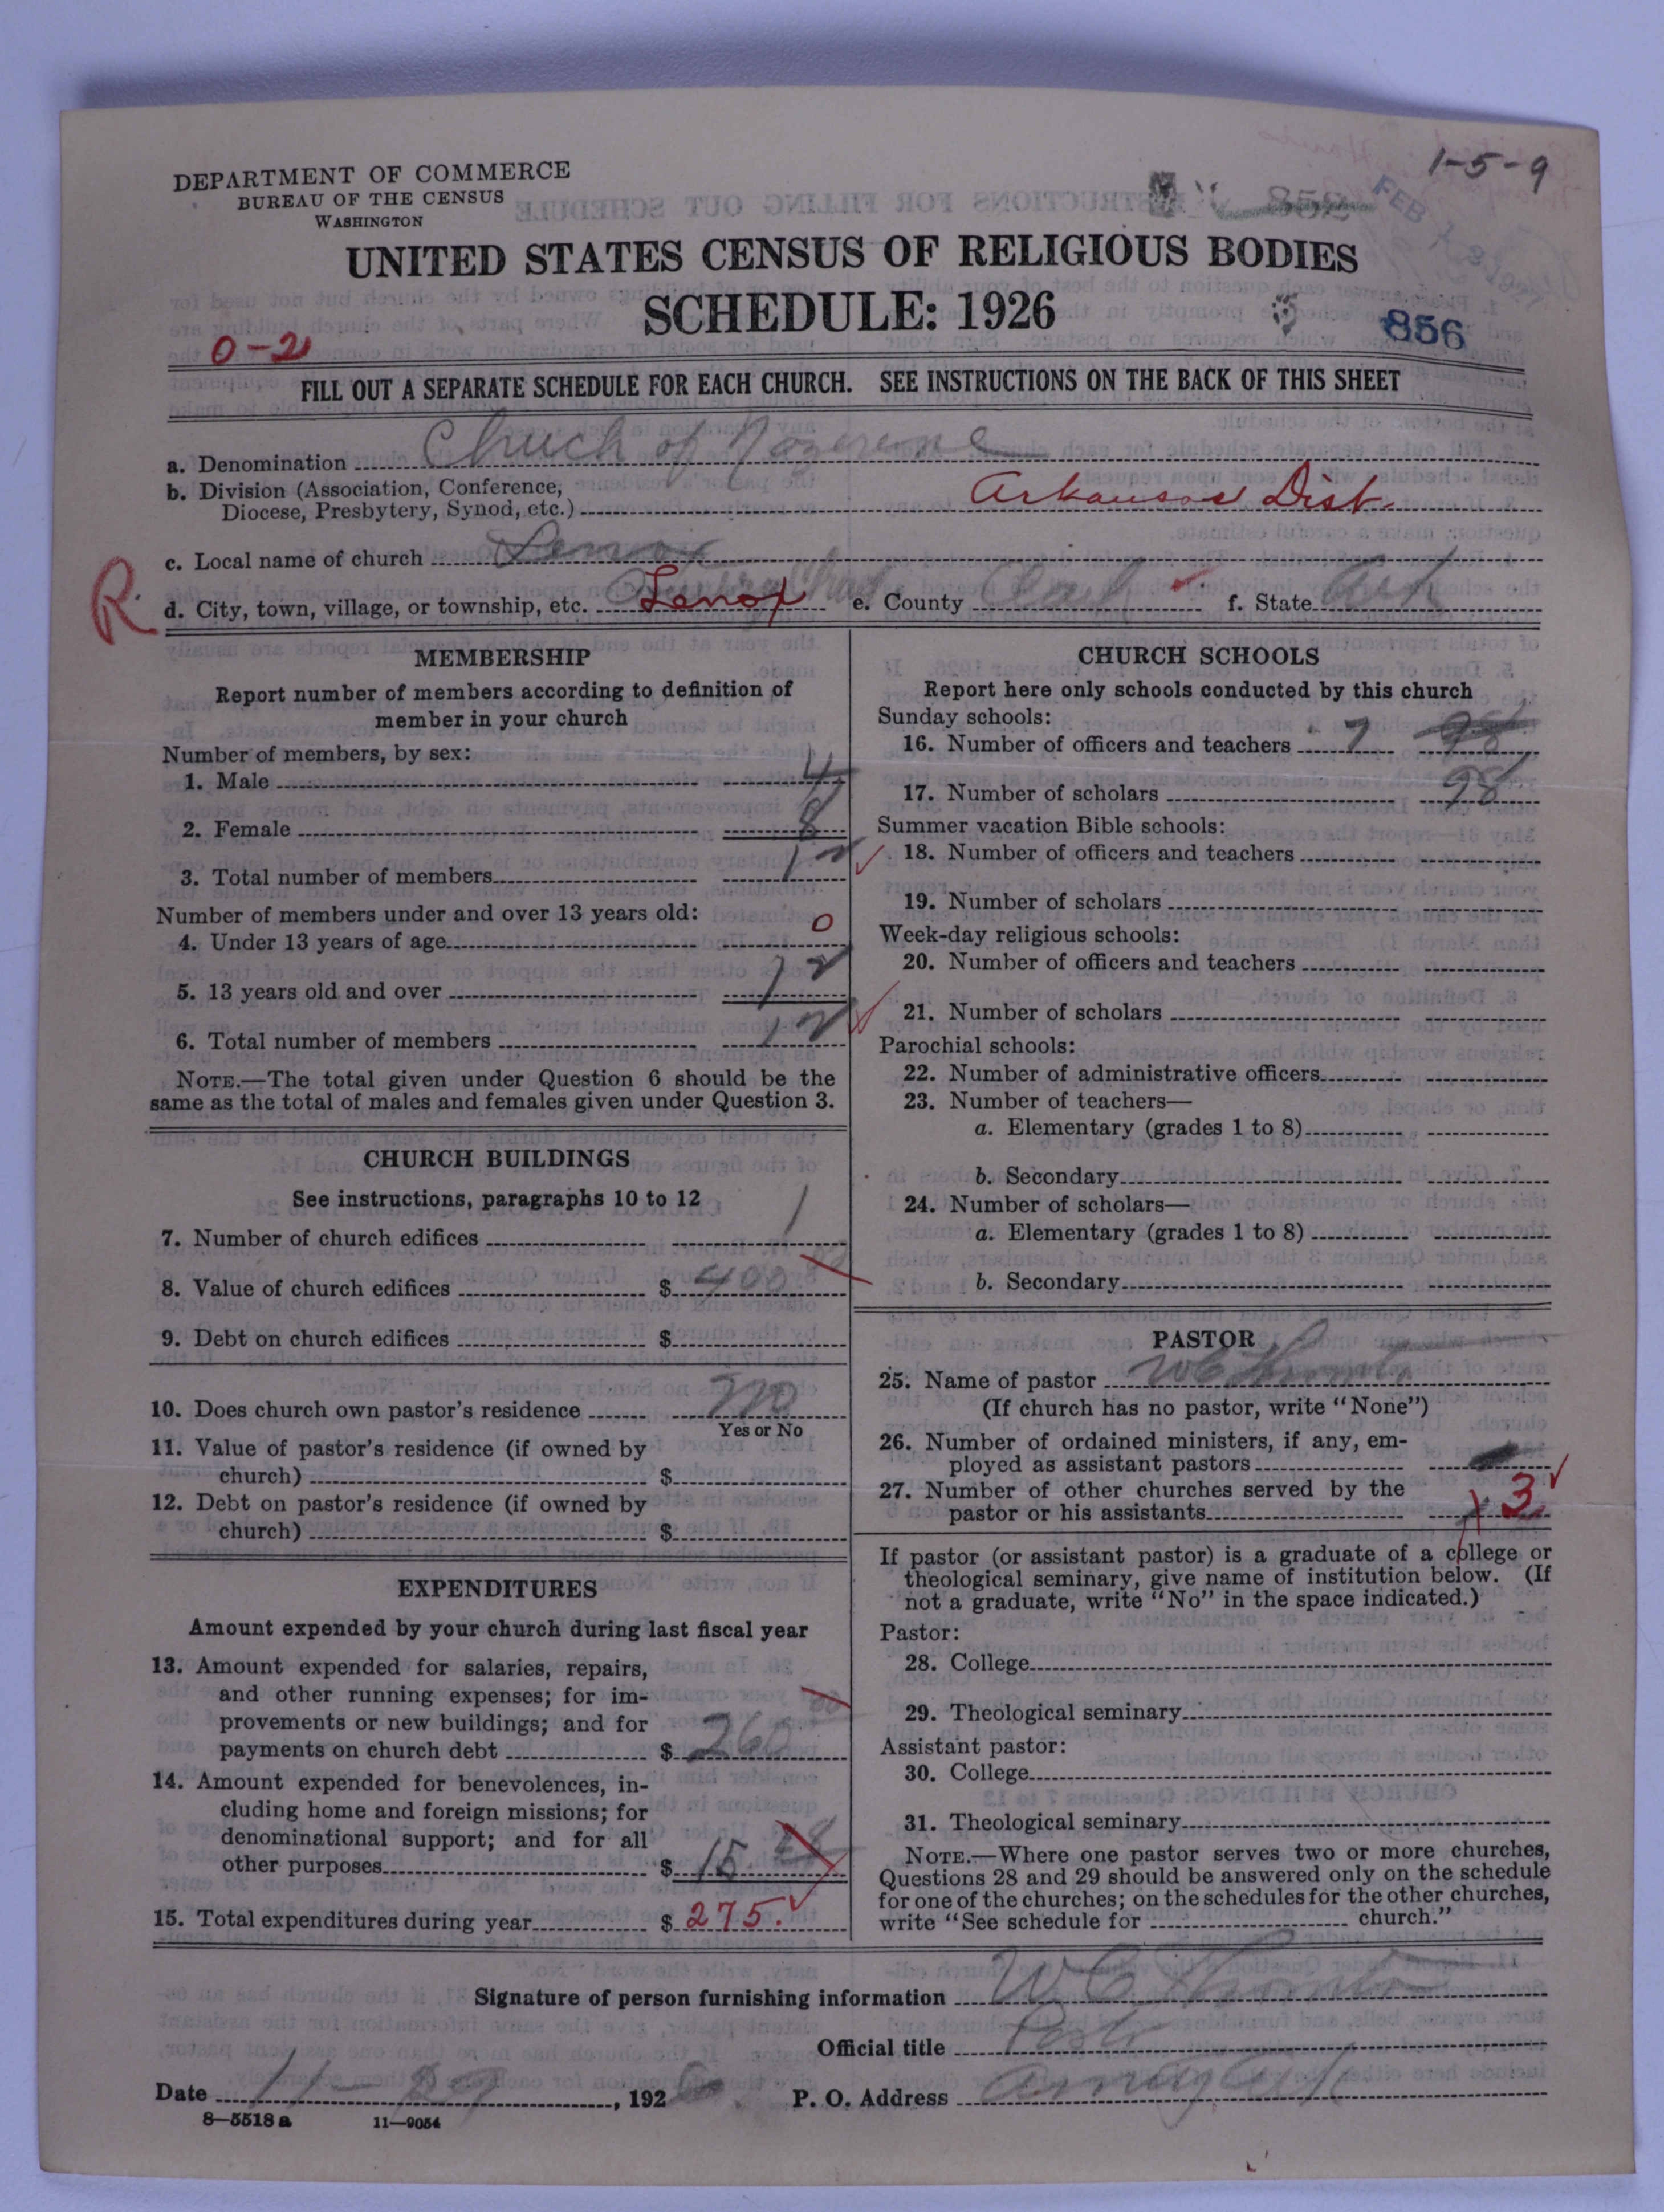 DEPARTMENT OF COMMERCE
BUREAU OF THE CENSUS
WASHINGTON
1-5-9
852
FEB
UNITED STATES CENSUS OF RELIGIOUS BODIES
SCHEDULE: 1926
856
0-2
FILL OUT A SEPARATE SCHEDULE FOR EACH CHURCH. SEE INSTRUCTIONS ON THE BACK OF THIS SHEET
a. Denomination Church of Nazerene
b. Division (Association, Conference,
Diocese, Presbytery, Synod, etc.) Arkansas Dist.
c. Local name of church Lenox
R d. City, town, village, or township, etc. Lenox e. County f. State Ark
MEMBERSHIP
Report number of members according to definition of
member in your church
Number of members, by sex:
1. Male 4
2. Female 8
3. Total number of members 12
Number of members under and over 13 years old:
4. Under 13 years of age 0
5. 13 years old and over 12
6. Total number of members 12
NOTE.—The total given under Question 6 should be the
same as the total of males and females given under Question 3.
CHURCH BUILDINGS
See instructions, paragraphs 10 to 12
7. Number of church edifices 1
8. Value of church edifices $ 400
9. Debt on church edifices $
10. Does church own pastor's residence no
Yes or No
11. Value of pastor's residence (if owned by
church) $
12. Debt on pastor's residence (if owned by
church) $
EXPENDITURES
Amount expended by your church during last fiscal year
13. Amount expended for salaries, repairs,
and other running expenses; for im-
provements or new buildings; and for
payments on church debt $ 260
14. Amount expended for benevolences, in-
cluding home and foreign missions; for
denominational support; and for all
other purposes $ 15
15. Total expenditures during year $ 275.
CHURCH SCHOOLS
Report here only schools conducted by this church
Sunday schools:
16. Number of officers and teachers 7 98
17. Number of scholars 98
Summer vacation Bible schools:
18. Number of officers and teachers
19. Number of scholars
Week-day religious schools:
20. Number of officers and teachers
21. Number of scholars
Parochial schools:
22. Number of administrative officers
23. Number of teachers—
a. Elementary (grades 1 to 8)
b. Secondary
24. Number of scholars—
a. Elementary (grades 1 to 8)
b. Secondary
PASTOR
25. Name of pastor W C
(If church has no pastor, write "None")
26. Number of ordained ministers, if any, em-
ployed as assistant pastors
27. Number of other churches served by the
pastor or his assistants 3
If pastor (or assistant pastor) is a graduate of a college or
theological seminary, give name of institution below. (If
not a graduate, write "No" in the space indicated.)
Pastor:
28. College
29. Theological seminary
Assistant pastor:
30. College
31. Theological seminary
NOTE.—Where one pastor serves two or more churches,
Questions 28 and 29 should be answered only on the schedule
for one of the churches; on the schedules for the other churches,
write "See schedule for church."
Signature of person furnishing information W C
Official title Pastor
Date 11-29, 1926 P. O. Address
8—5518 a 11—9054